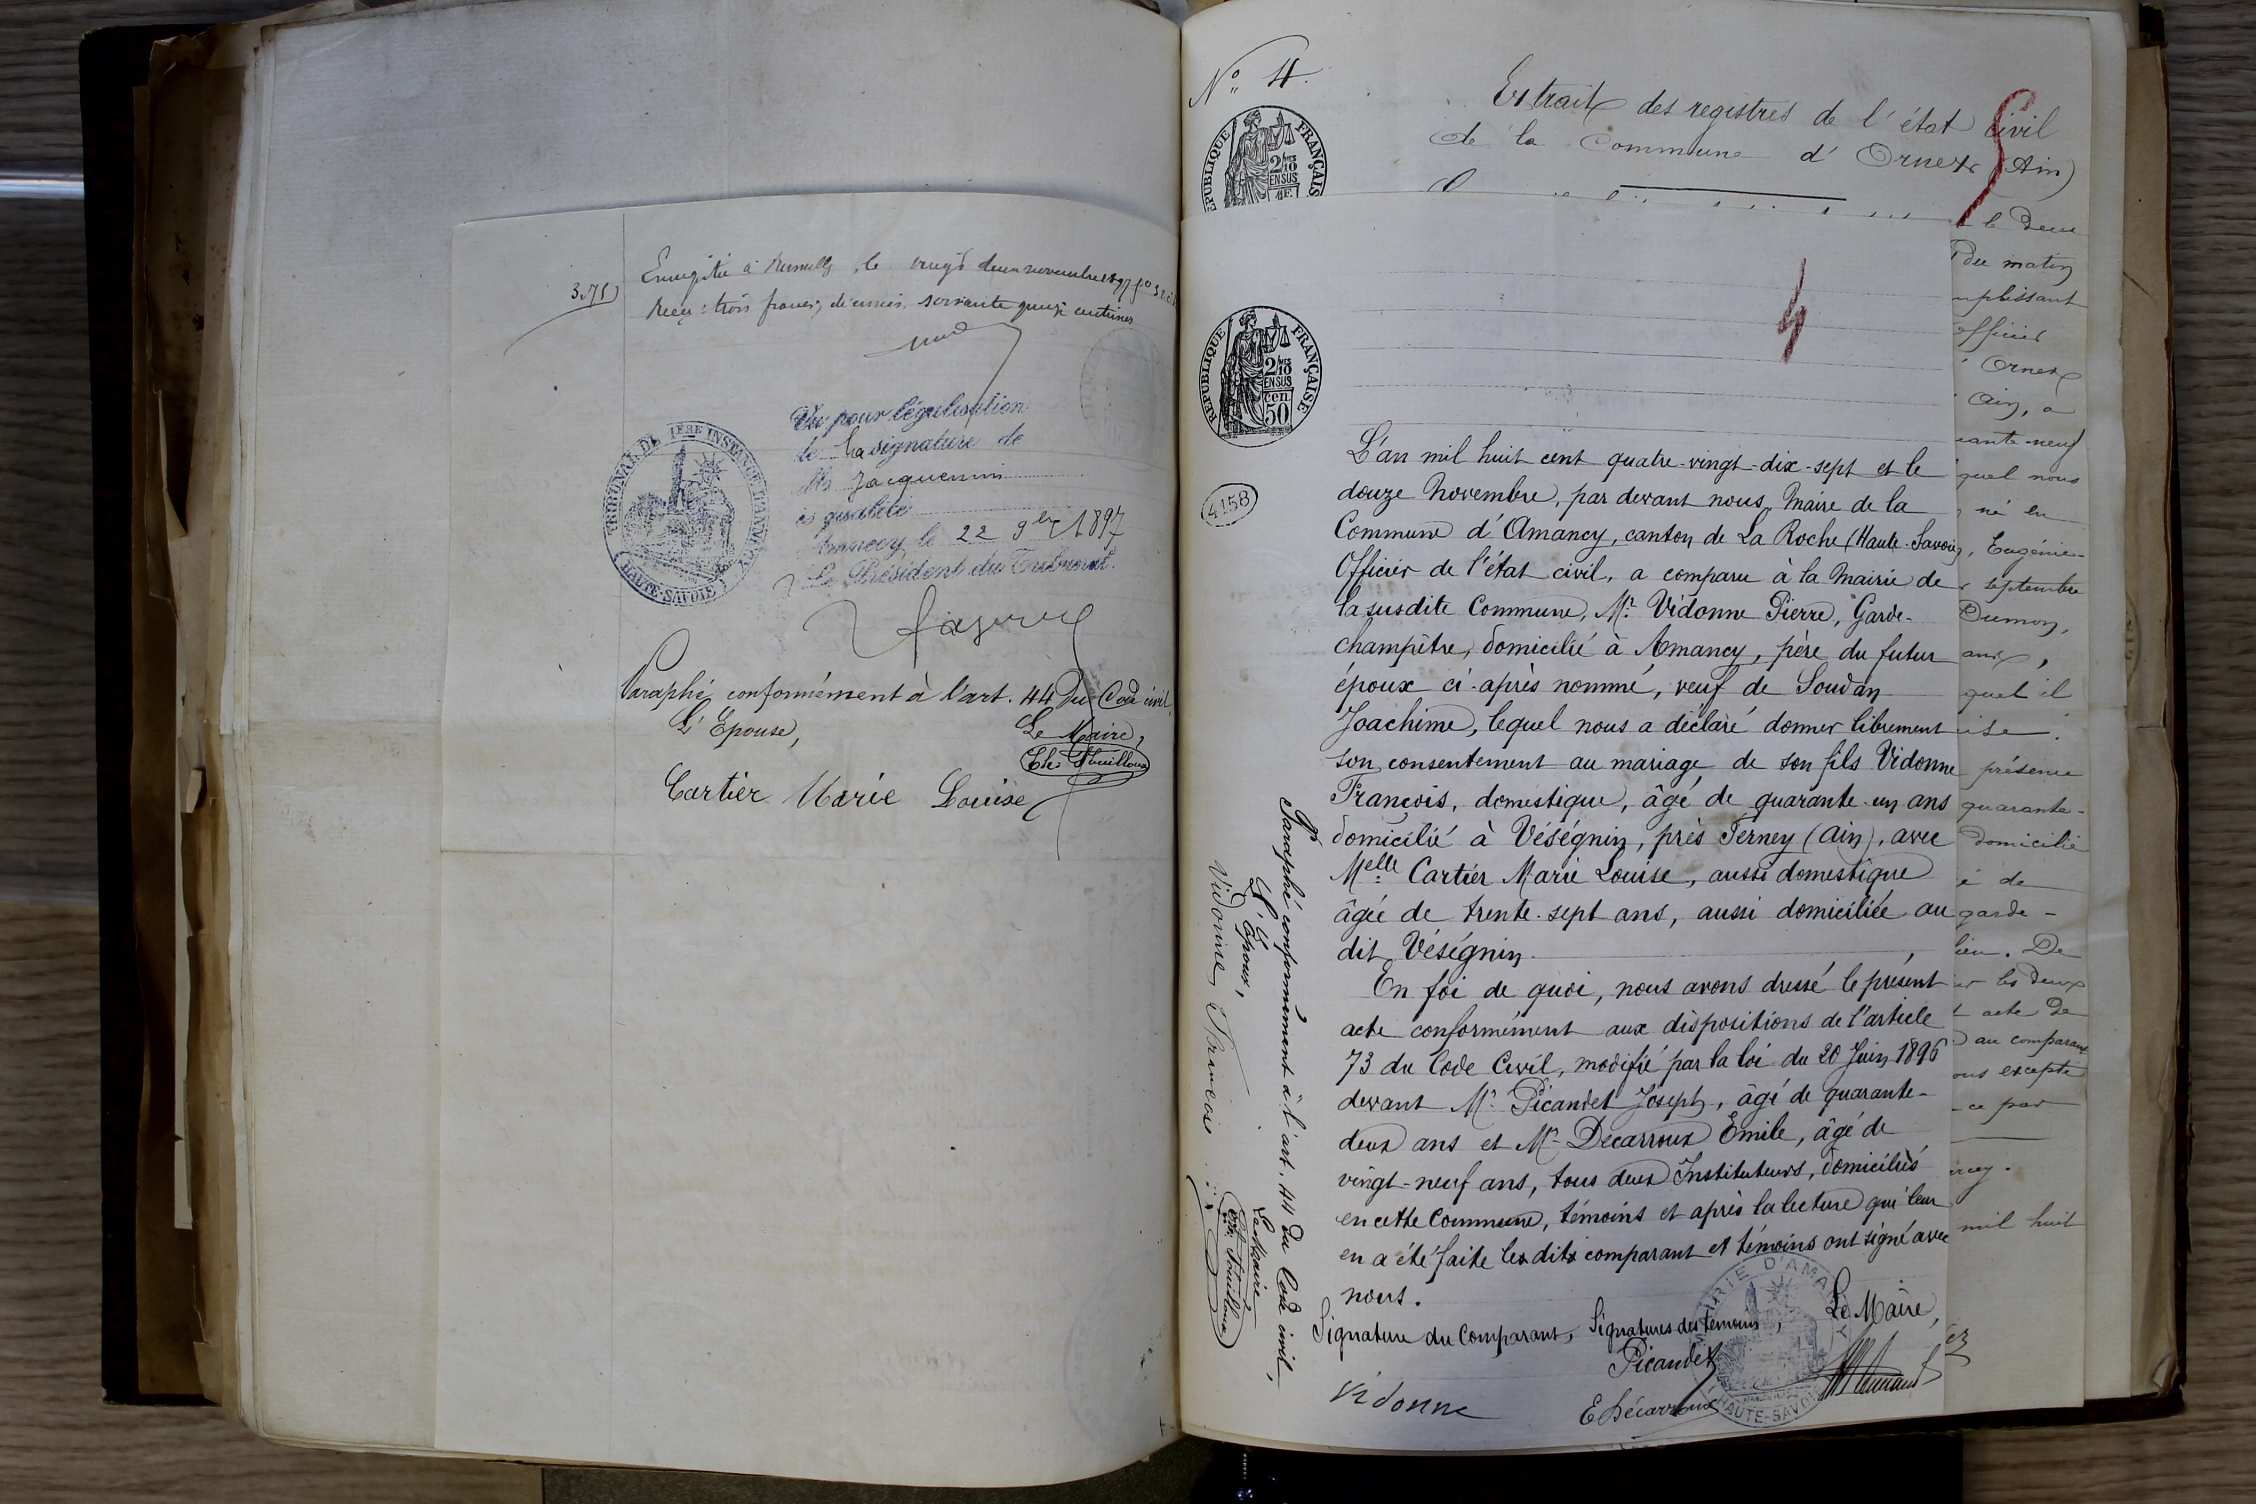 3.75
Enregistré à Rumilly, le vingt deux novembre 1897 fo
Reçu : trois francs, décimes, soixante quinze centimes
TRIBUNAL DE 1ÈRE INSTANCE D'ANNECY
HAUTE-SAVOIE
Vu pour légalisation
de la signature de
Mr Jacquemin
ès qualité
Annecy, le 22 9bre 1897
Le Président du Tribunal.
Paraphé conformément à l'art. 44 du Code civil,
L'Epouse,
Le Maire,
Cartier Marie Louise
No 4.
Extrait des registres de l'état civil
de la Commune d'Ornex (Ain)
RÉPUBLIQUE FRANÇAISE
2/10
EN SUS
RÉPUBLIQUE FRANÇAISE
2/10
EN SUS
cen
50
4158
L'an mil huit cent quatre-vingt-dix-sept et le
douze Novembre, par devant nous, Maire de la
Commune d'Amancy, canton de La Roche (Haute-Savoie),
Officier de l'état civil, a comparu à la Mairie de
la susdite Commune, Mr. Vidonne Pierre, Garde-
champêtre, domicilié à Amancy, père du futur
époux ci-après nommé, veuf de Soudan
Joachime, lequel nous a déclaré donner librement
son consentement au mariage de son fils Vidonne
François, domestique, âgé de quarante-un ans
domicilié à Véségnin, près Ferney (Ain), avec
Melle Cartier Marie Louise, aussi domestique
âgée de trente-sept ans, aussi domiciliée au
dit Véségnin.
En foi de quoi, nous avons dressé le présent
acte conformément aux dispositions de l'article
73 du Code Civil, modifié par la loi du 20 Juin 1896
devant Mr. Picandet Joseph, âgé de quarante-
deux ans et Mr. Decarroux Emile, âgé de
vingt-neuf ans, tous deux Instituteurs, domiciliés
en cette Commune, témoins et après la lecture qui leur
en a été faite les dits comparant et témoins ont signé avec
nous.
Signature du Comparant, Signatures des témoins, Le Maire,
Vidonne
Picandet
E Décarroux
MAIRIE D'AMANCY
HAUTE-SAVOIE
Paraphé conformément à l'art. 44 du Code civil,
L'Epoux,
Le Maire
Vidonne François
le deux
du matin
mplissant
officier
Ornex
Ain, à
xante-neuf
quel nous
né en
Eugénie-
septembre
Dumon,
ans,
quel il
ise.
présence
quarante-
domicilié
é de
garde-
lieu. De
les deux
acte de
au comparant
ous excepté
ce par
mil huit